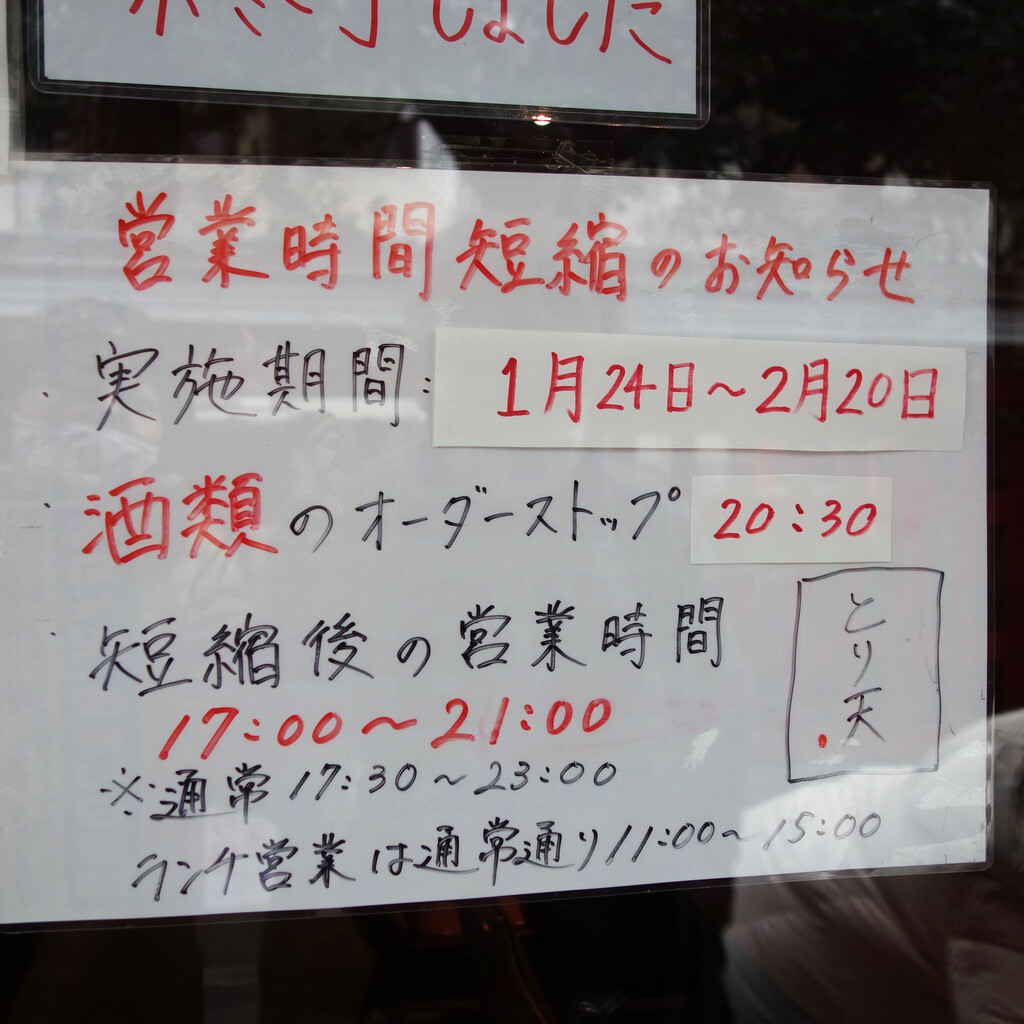 終了しました
営業時間短縮のお知らせ
実施期間: 1月24日～2月20日
酒類のオーダーストップ 20:30
短縮後の営業時間
17:00～21:00
※通常 17:30～23:00
ランチ営業は通常通り 11:00～15:00
とり天